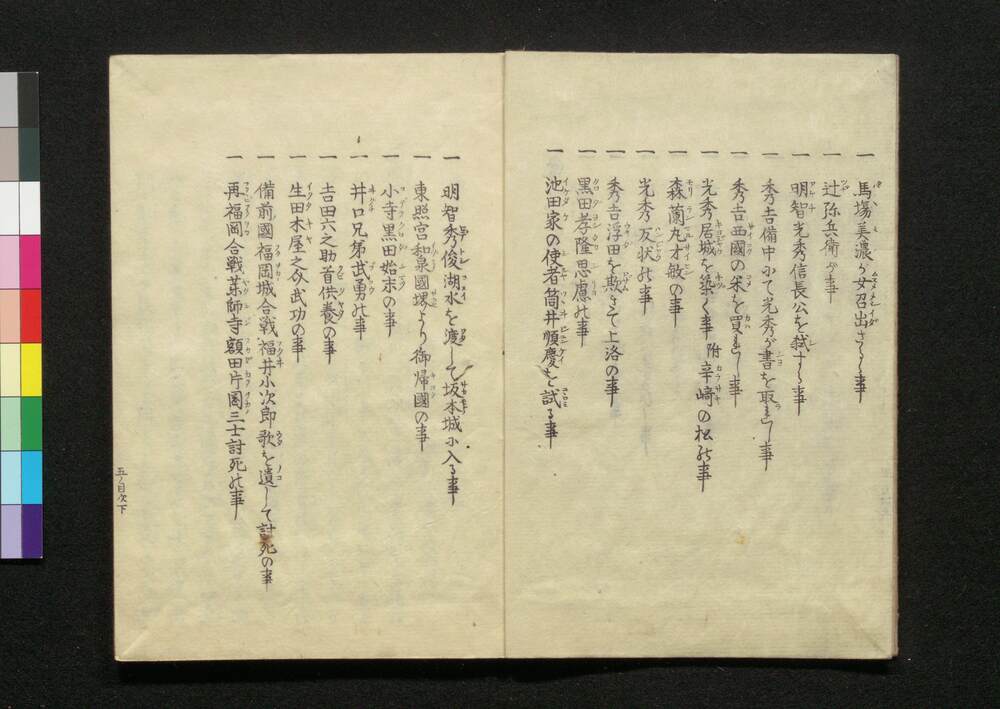 一 馬場美濃が女召出さるゝ事
一 辻弥兵衛が事
一 明智光秀信長公を弑する事
一 秀吉備中にて光秀が書を取られし事
一 秀吉西國の米を買れし事
一 光秀居城を築く事 附 辛崎の松の事
一 森蘭丸才敏の事
一 光秀反状の事
一 秀吉浮田を欺きて上洛の事
一 黒田孝隆思慮の事
一 池田家の使者筒井順慶を試る事
一 明智秀俊湖水を渡して坂本城に入る事
一 東照宮和泉國堺より御帰國の事
一 小寺黒田始末の事
一 井口兄弟武勇の事
一 吉田六之助首供養の事
一 生田木屋之介武功の事
一 備前國福岡城合戦福井小次郎歌を遺して討死の事
一 再福岡合戦薬師寺額田片岡三士討死の事
五ノ目次下